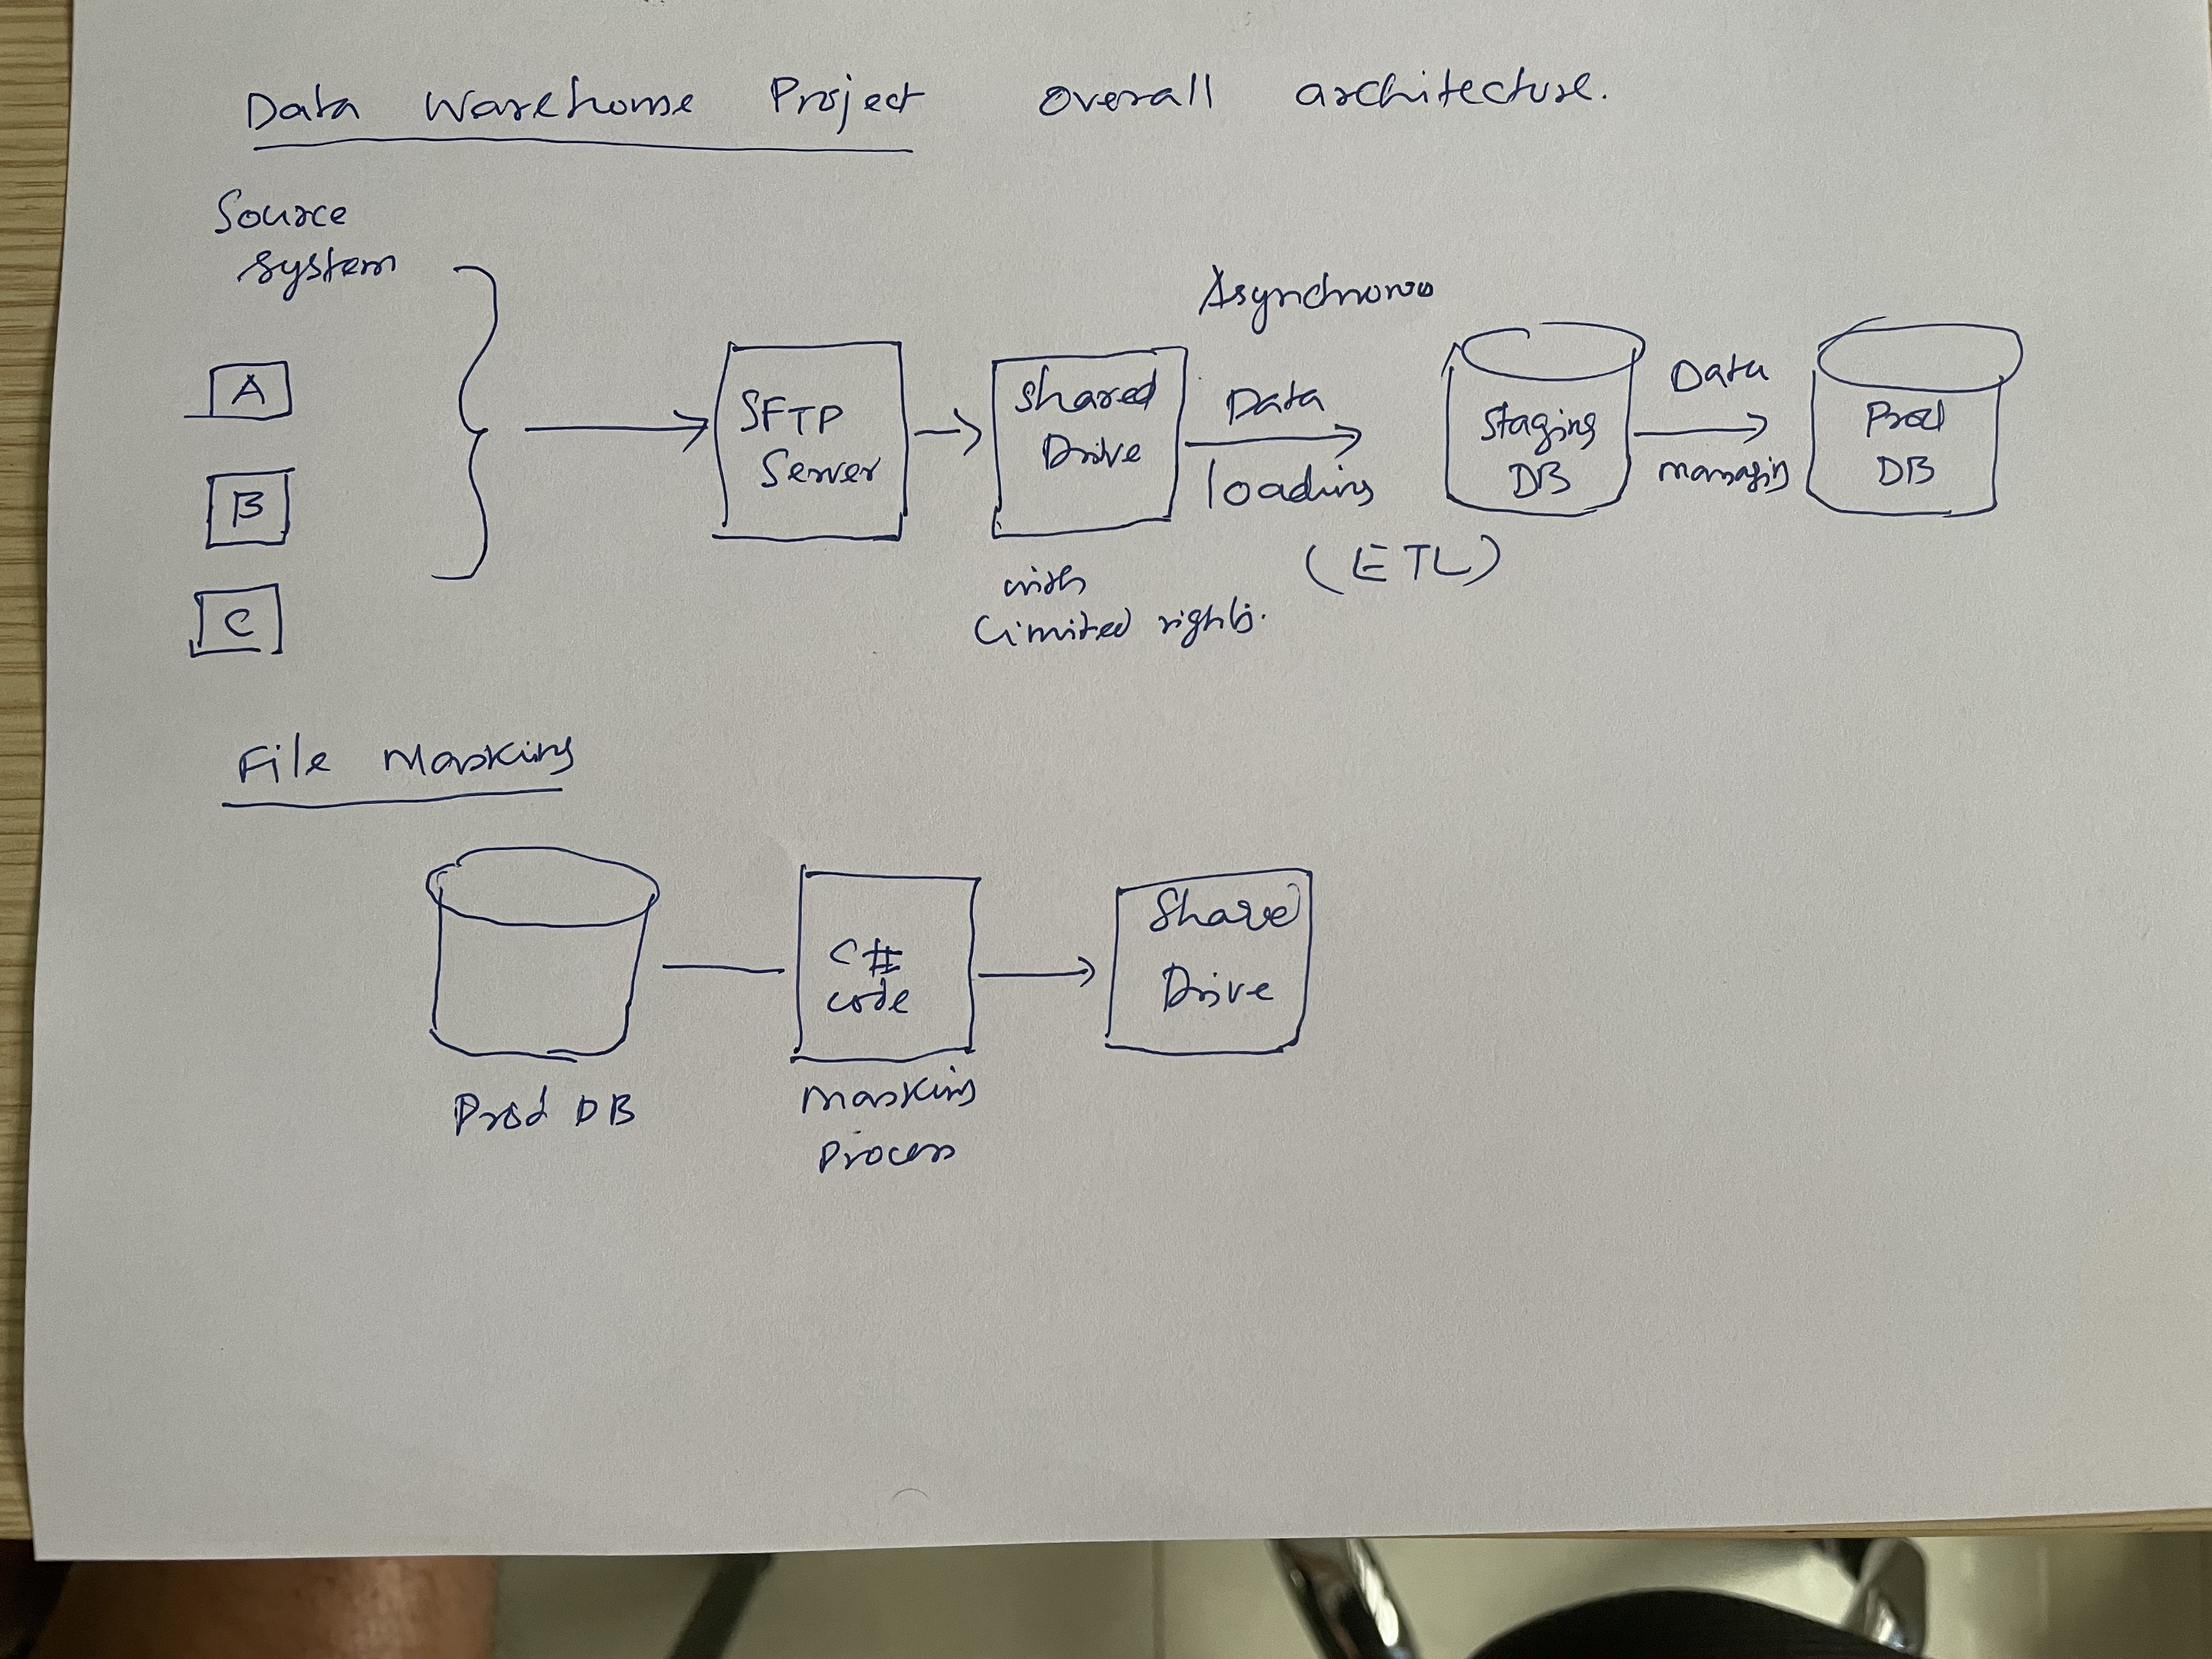 Data Warehouse Project overall architecture.
Source
System
A
B
C
SFTP
Server
Shared
Drive
with
limited rights.
Asynchronous
Data
loading
(ETL)
Staging
DB
Data
Prod
DB
File Masking
Prod DB
C#
code
Masking
Process
Shared
Drive